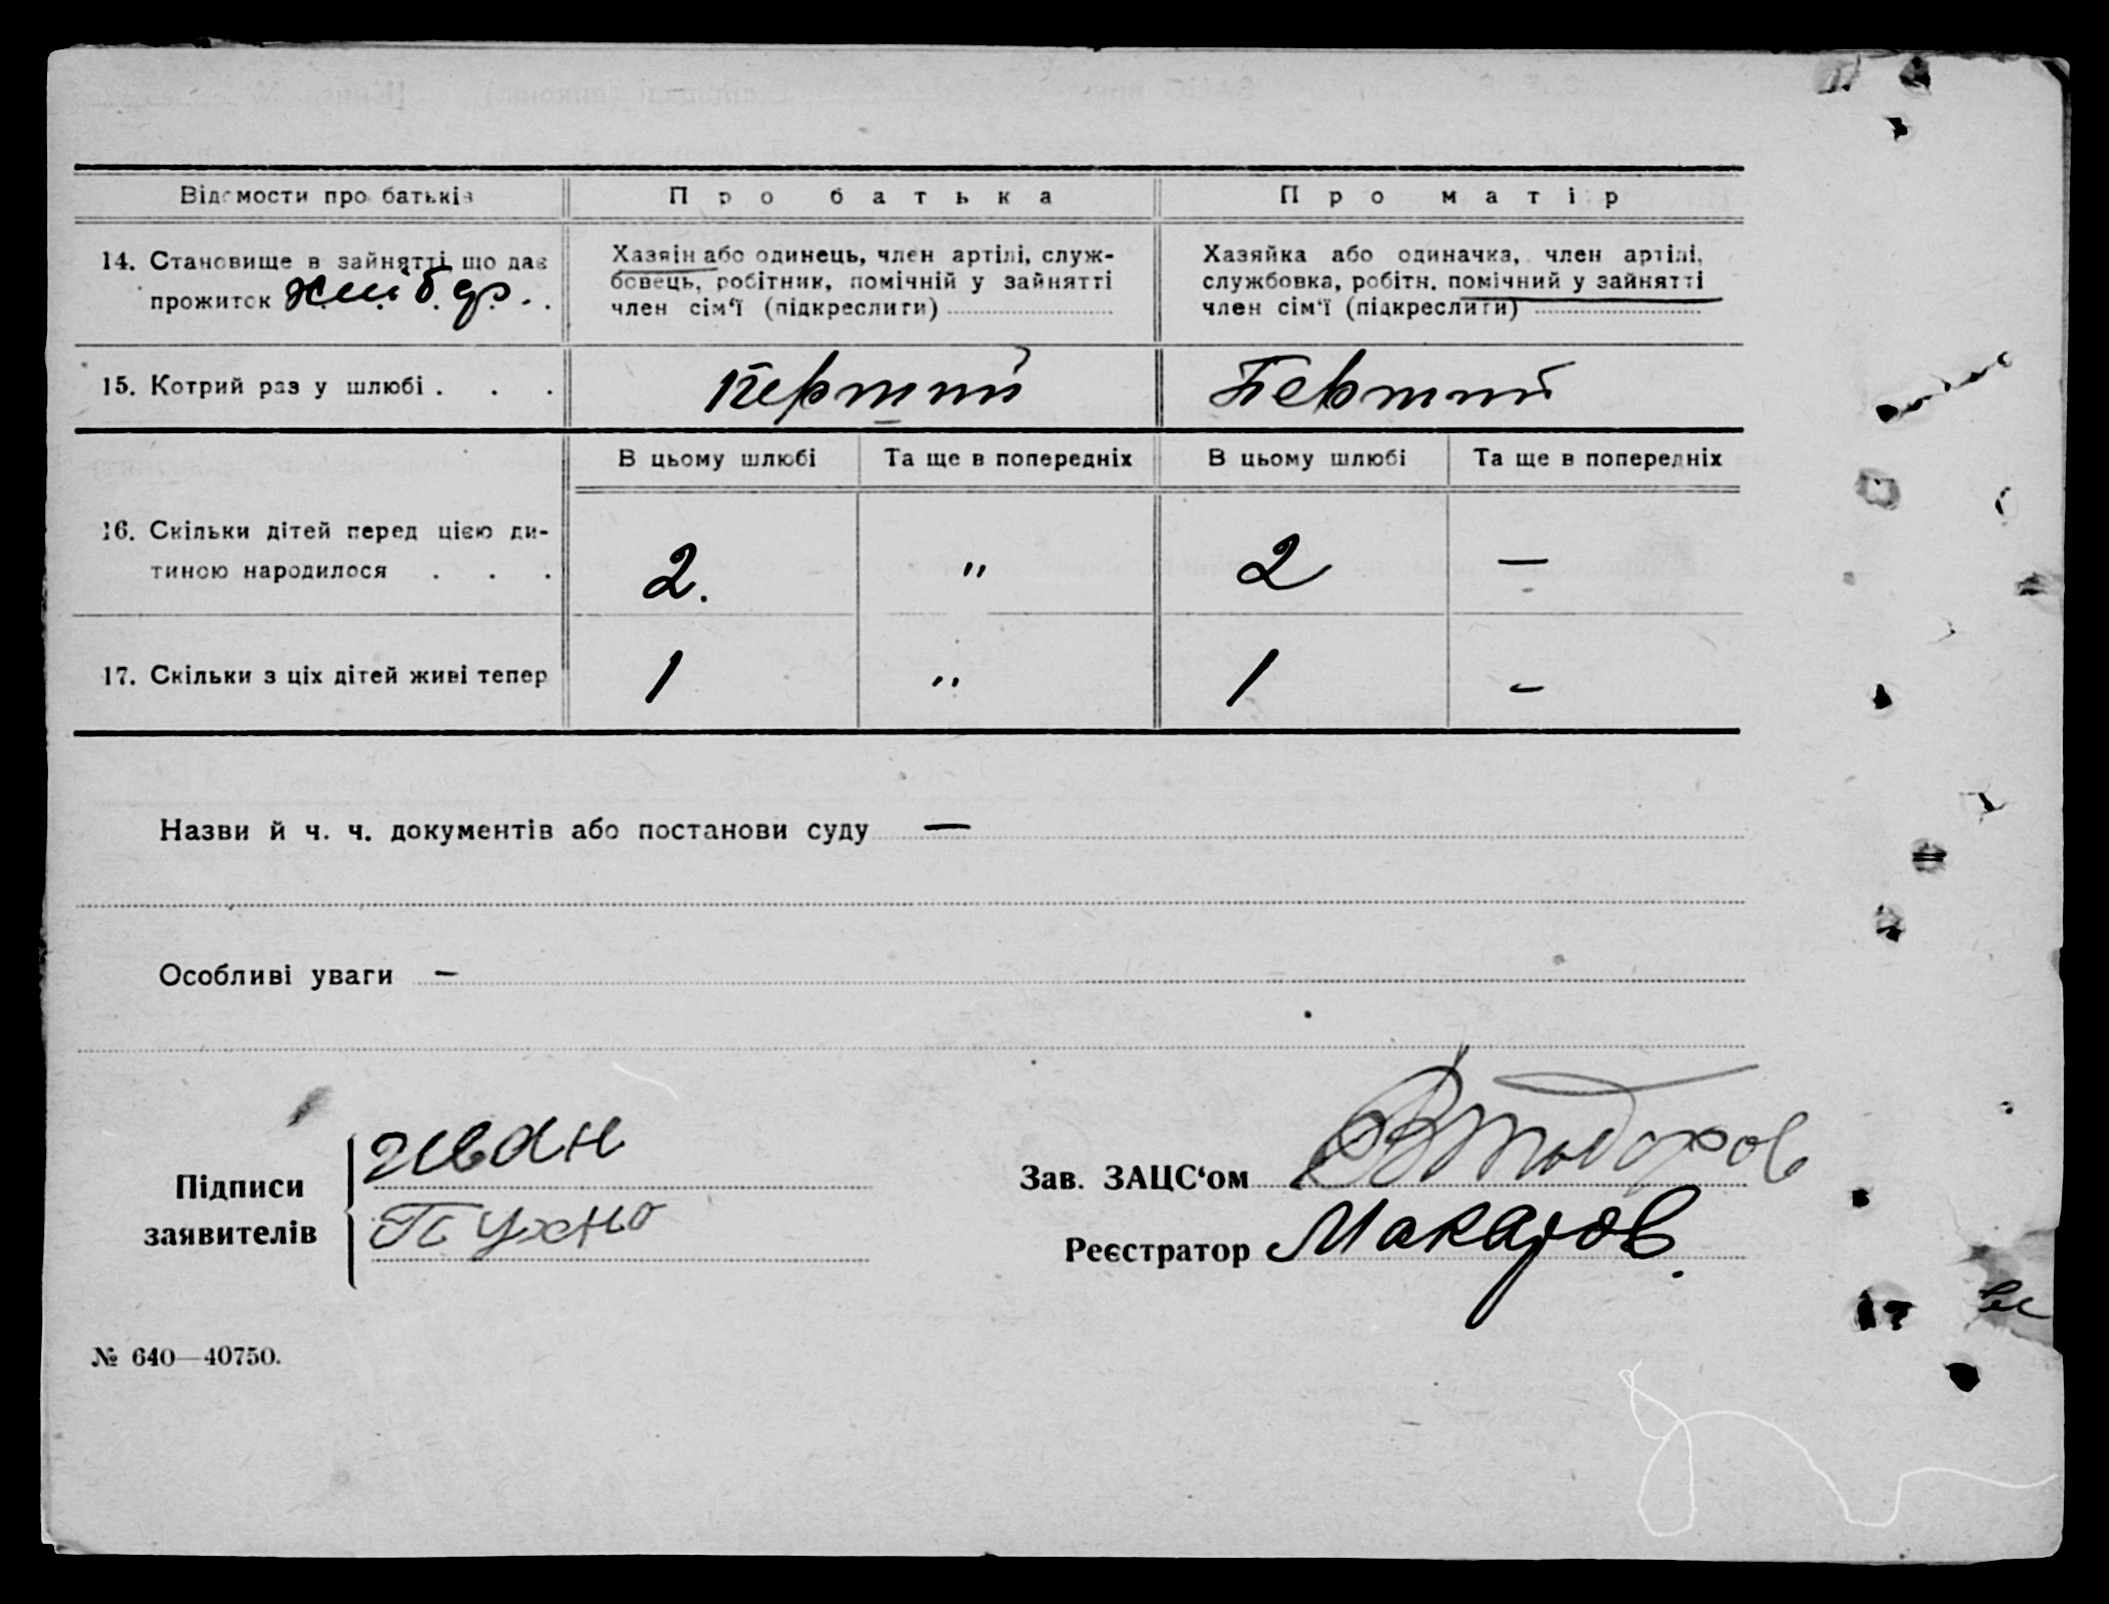 Відомости про батьків
Про батька
Про матір
14. Становище в зайнятті що дає
прожиток
Хазяін або одинець, член артілі, служ-
бовець, робітник, помічній у зайнятті
член сім‘ї (підкреслити)
Хазяйка або одиначка, член артілі,
службовка, робітн. помічний у зайнятті
член сім‘ї (підкреслити)
15. Котрий раз у шлюбі . . .
Перший
Перший
В цьому шлюбі
Та ще в попередніх
В цьому шлюбі
Та ще в попередніх
16. Скільки дітей перед цією ди-
тиною народилося . . .
2.
"
2
—
17. Скільки з ціх дітей живі тепер
1
"
1
-
Назви й ч. ч. документів або постанови суду —
Особливі уваги —
Підписи
заявителів
Иван
Пухно
Зав. ЗАЦС‘ом
Реєстратор Макаров.
№ 640—40750.